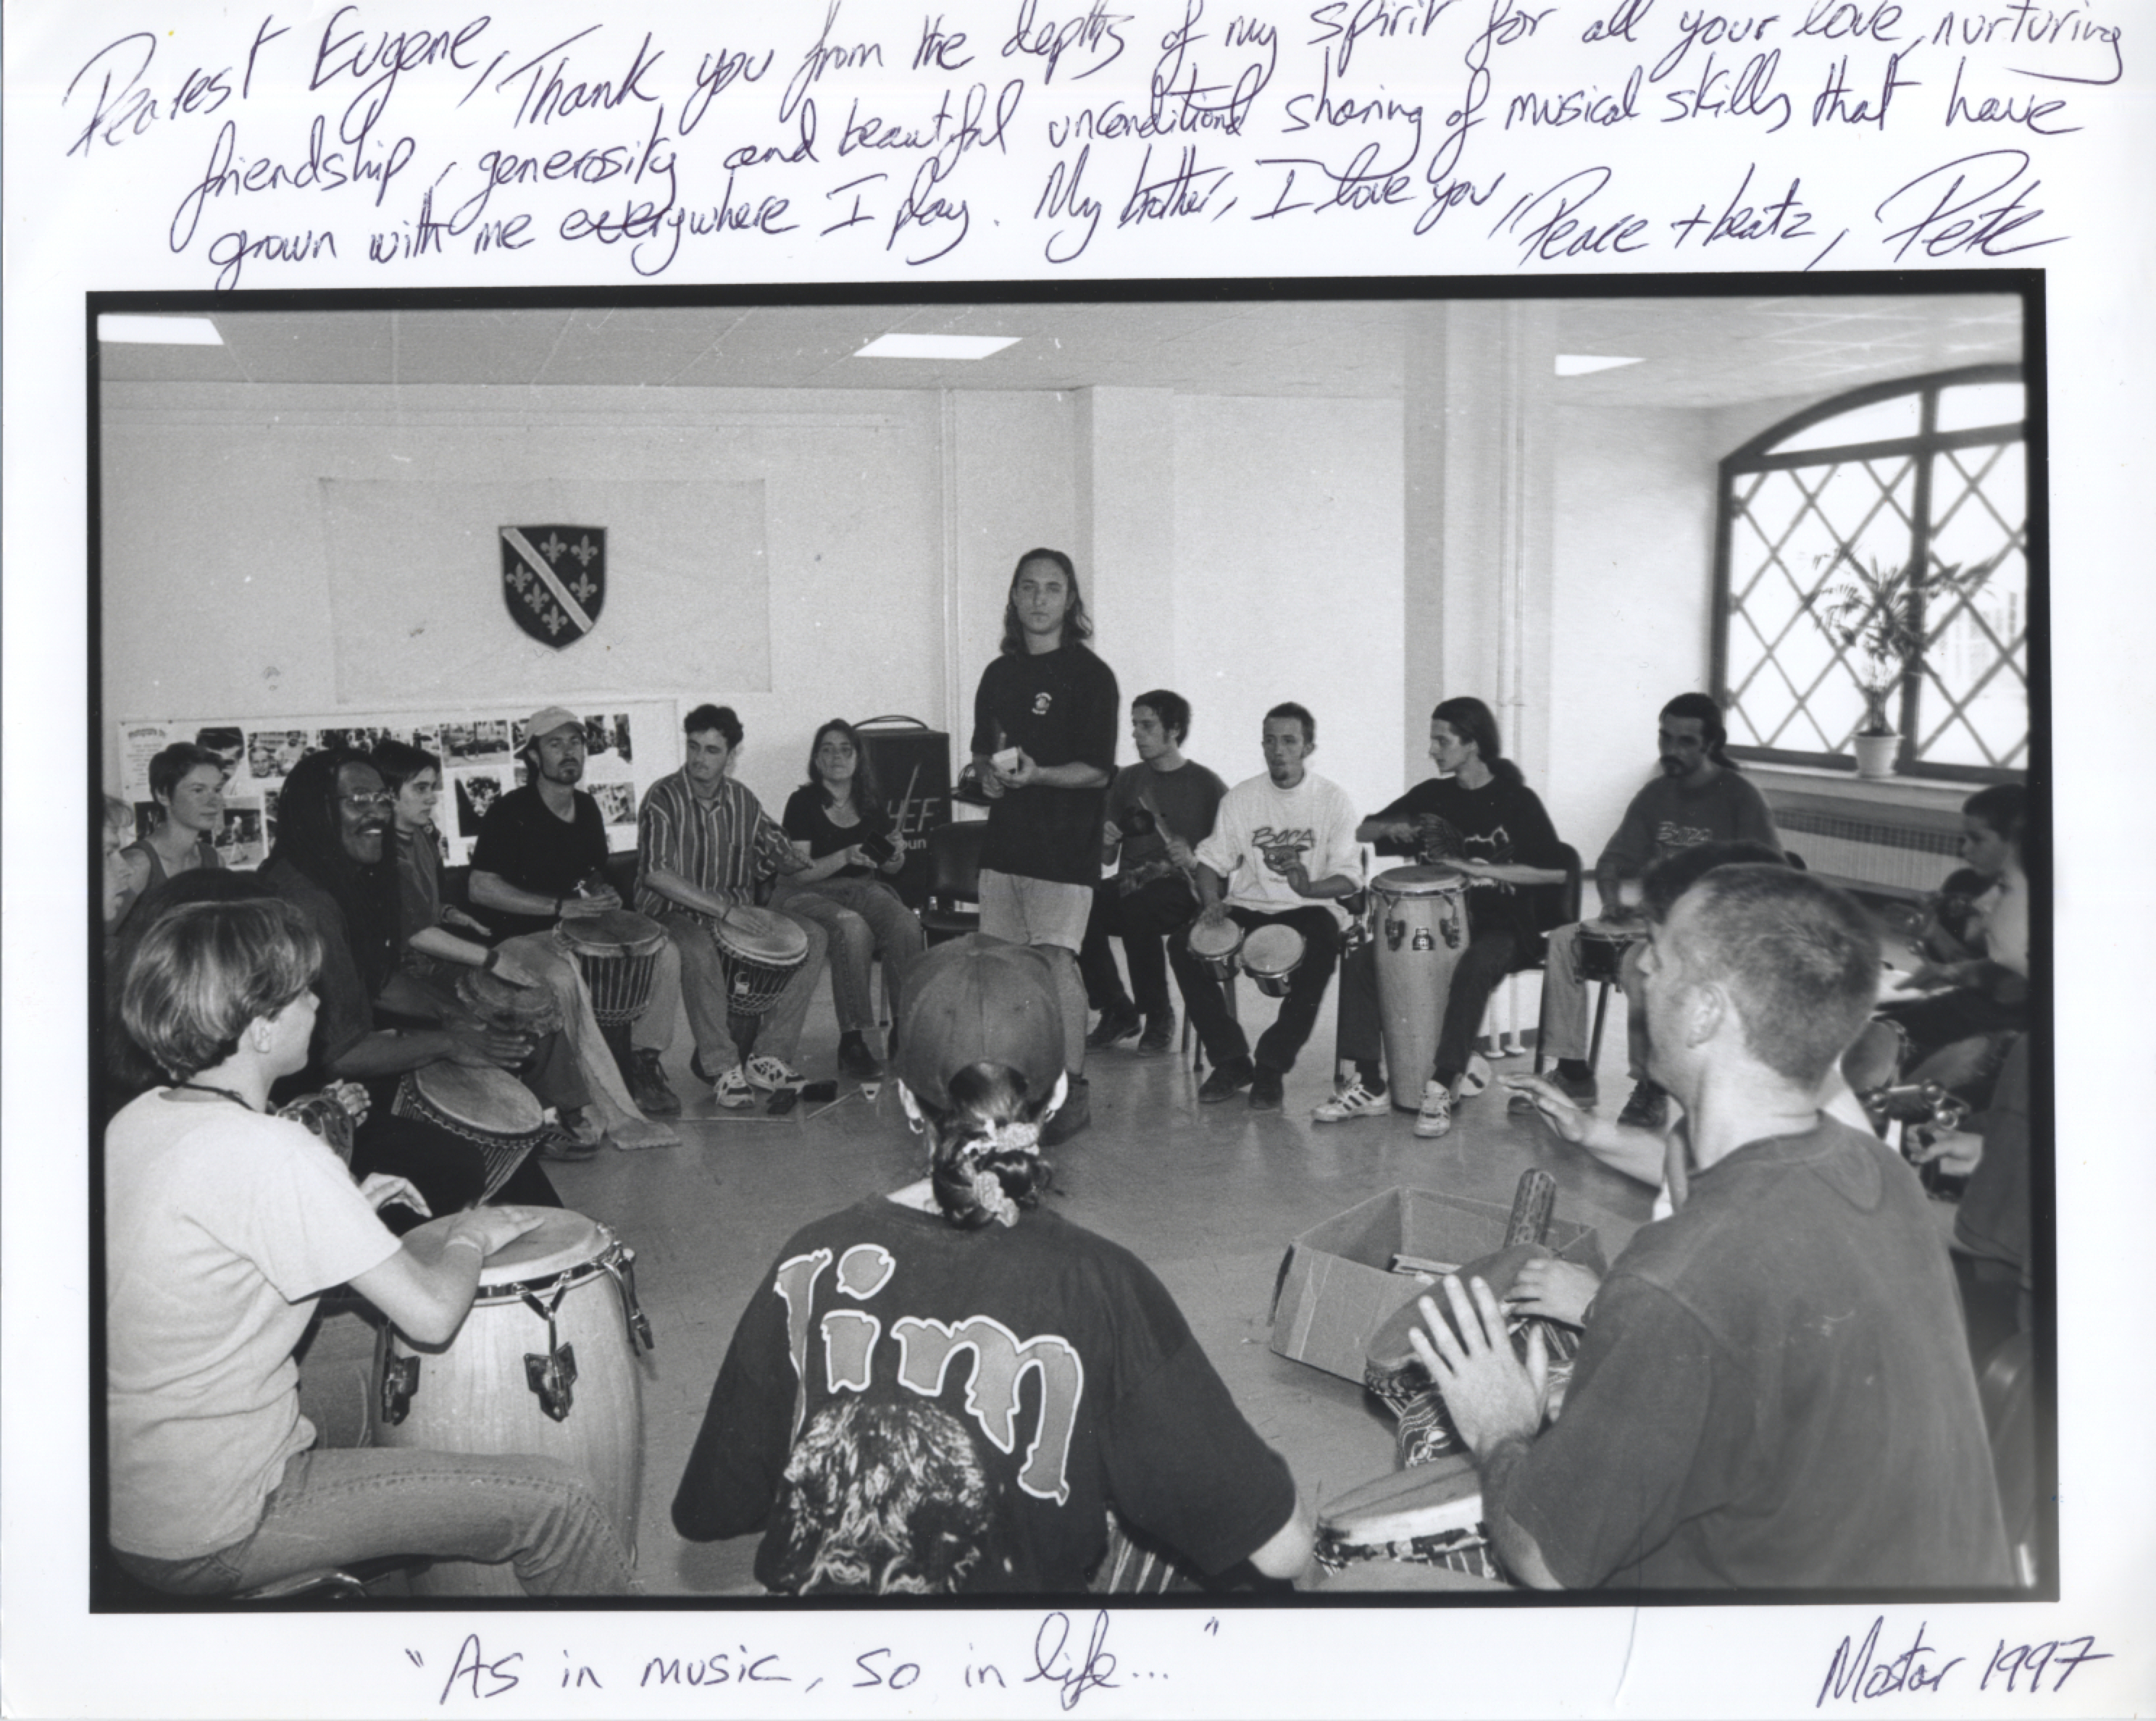 Dearest Eugene, Thank you from the depths of my spirit for all your love, nurturing
friendship, generosity and beautiful unconditional sharing of musical skills that have
grown with me everywhere I play. My brother, I love you, Peace + beatz, Pete
BORA
Jim
"As in music, so in life..."
Mostar 1997